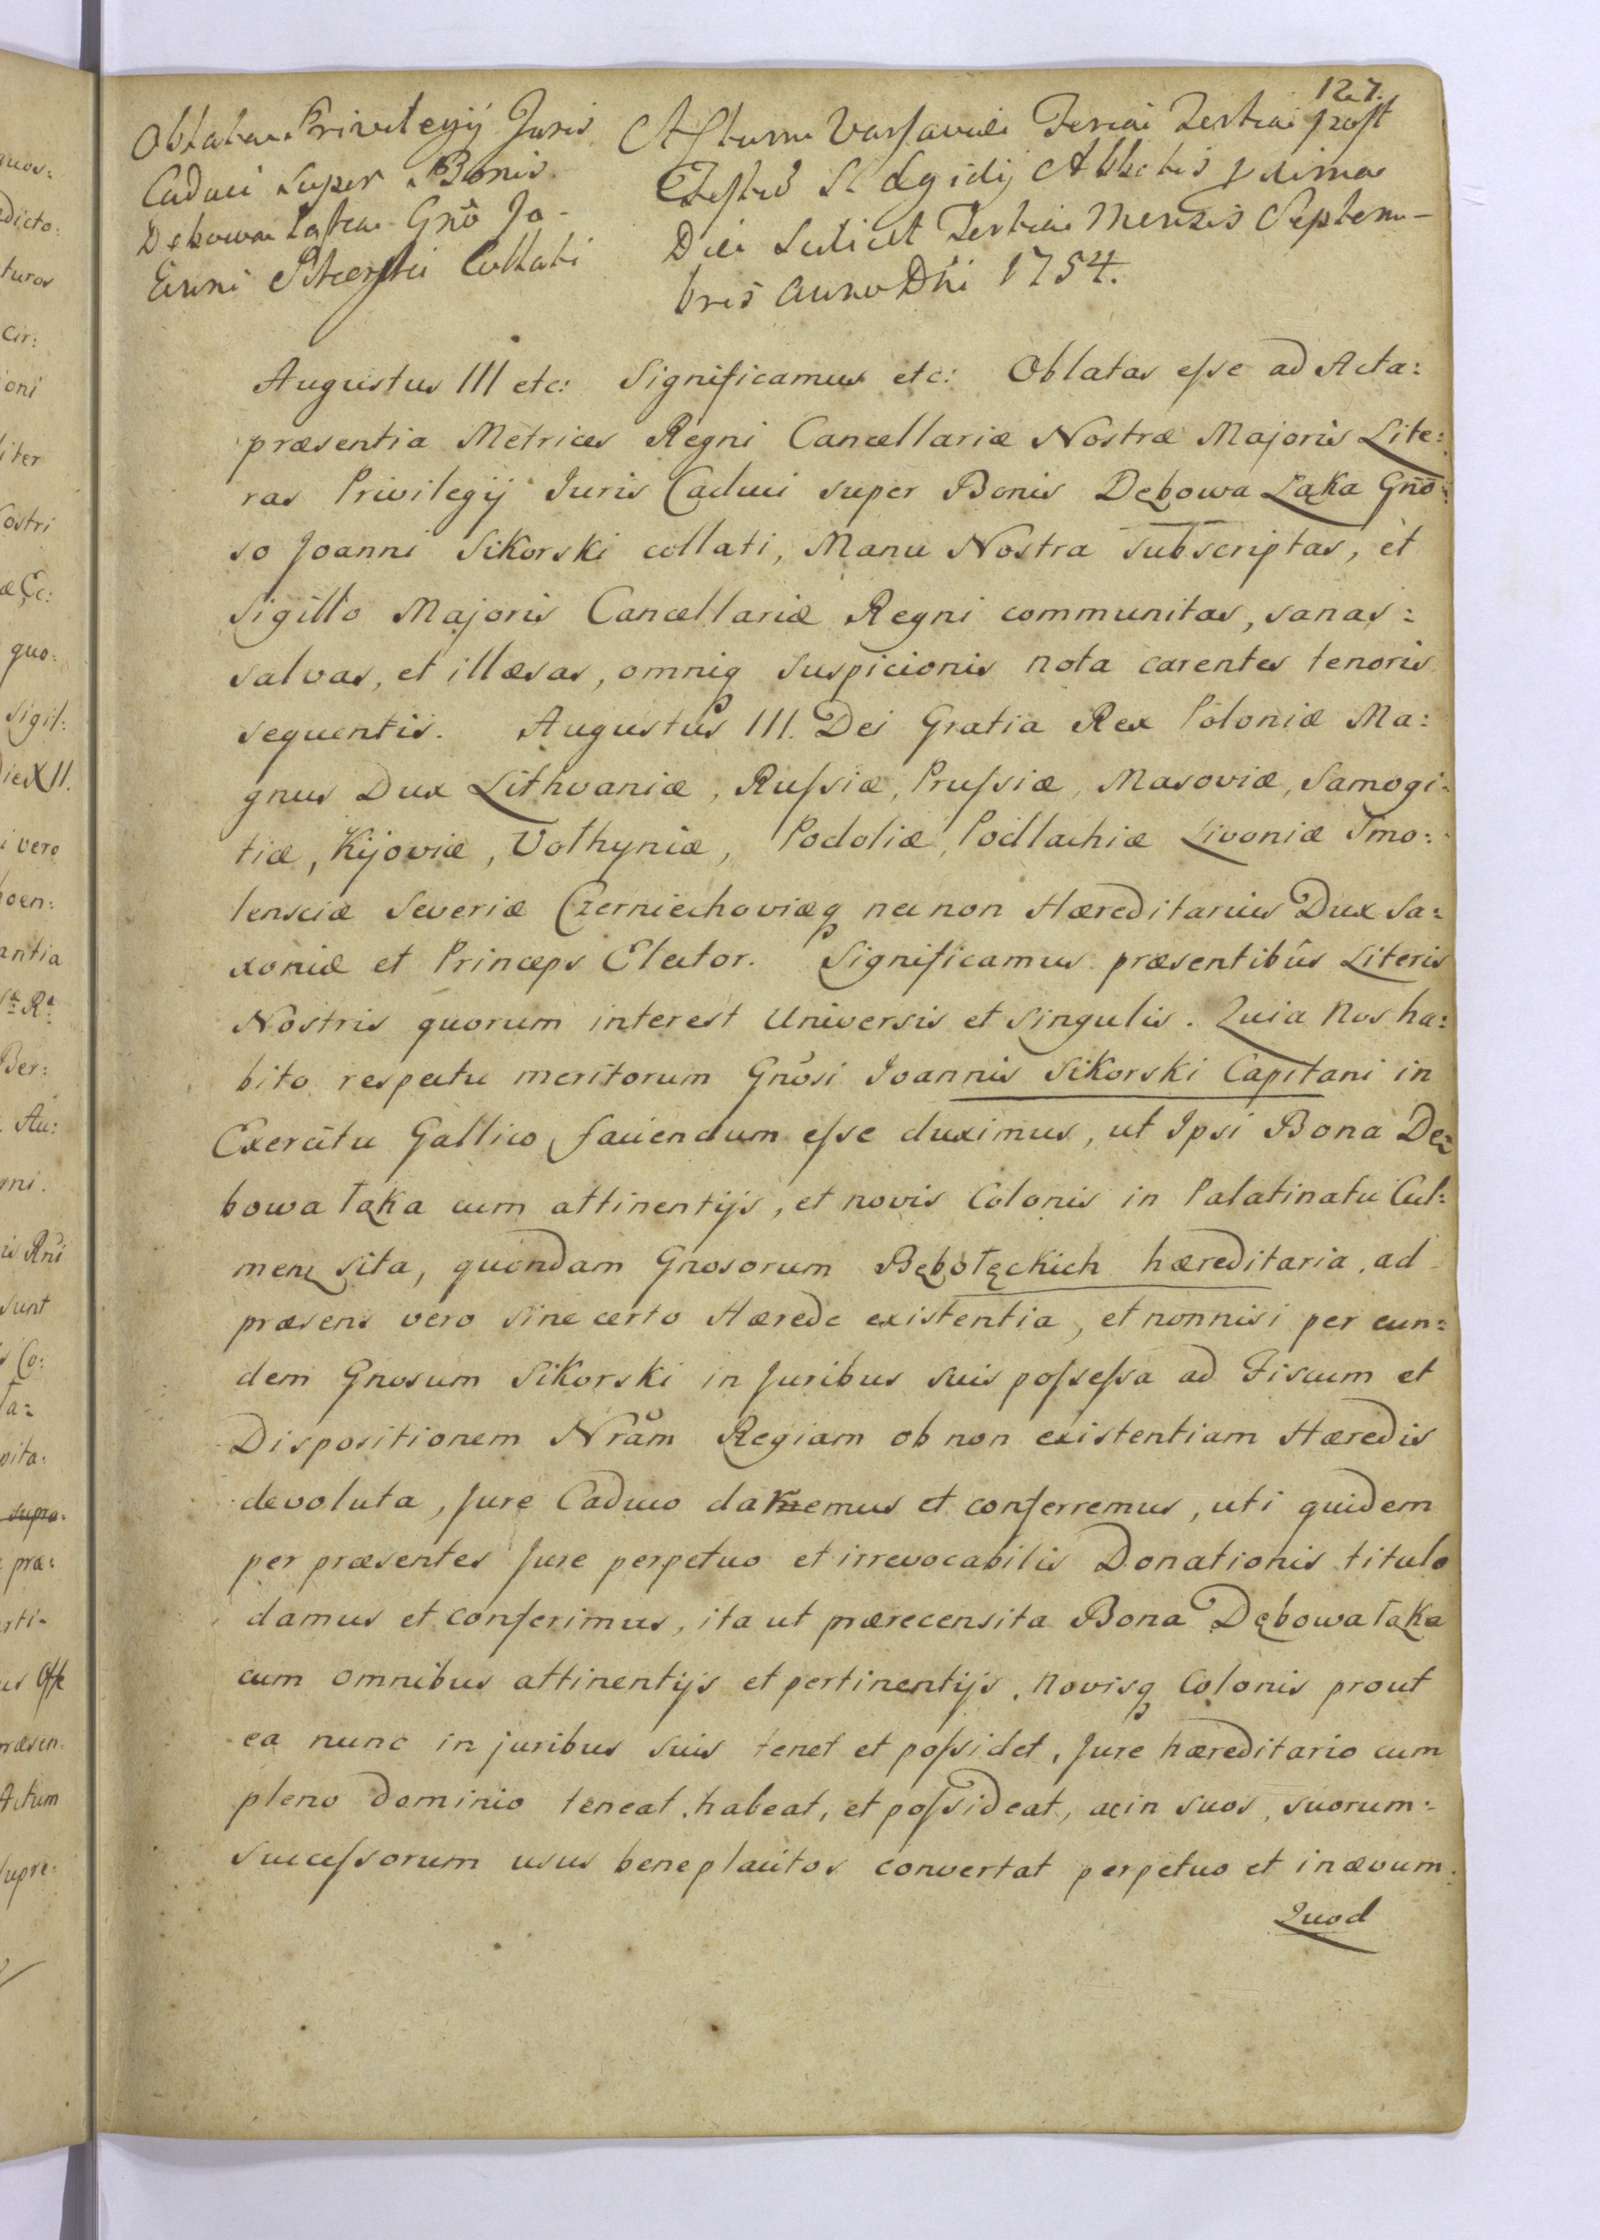 127.
Oblata Privilegij Juris
Caduci super Bonis
Dębowa Łąka Gnõ Jo-
anni Sikorski Collati
Actum Varsaviæ Feria Tertia post
Festum S. Ægidij Abbatis proxima
Die scilicet Tertia Mensis Septem-
bris Anno Dñi 1754.
Augustus III etc: Significamus etc: Oblatas esse ad Acta:
præsentia Metrices Regni Cancellariæ Nostræ Majoris Lite:
ras Privilegij Juris Caduci super Bonis Dębowa Łąka Gnõ:
so Joanni Sikorski collati, Manu Nostra subscriptas, et
Sigillo Majoris Cancellariæ Regni communitas, sanas:
salvas, et illæsas, omniq suspicionis nota carentes tenoris
sequentis. Augustus III. Dei Gratia Rex Poloniæ Ma:
gnus Dux Lithvaniæ, Russiæ, Prussiæ, Masoviæ, Samogi:
tiæ, Kijoviæ, Volhyniæ, Podoliæ, Podlachiæ Livoniæ Smo:
lensciæ Severiæ Czerniechoviæq nec non Hæreditarius Dux Sa:
xoniæ et Princeps Elector. Significamus præsentibûs Literis
Nostris quorum interest Universis et Singulis. Quia Nos ha:
bito respectu meritorum Gnõsi Joannis Sikorski Capitani in
Exercitu Gallico favendum esse duximus, ut Ipsi Bona Dę:
bowa Łąka cum attinentijs, et novis Colonis in Palatinatu Cul:
men sita, quondam Gnosorum Bębołęckich hæreditaria, ad
præsens vero sine certo Hærede existentia, et nonnisi per eun:
dem Gnosum Sikorski in Juribus suis possessa ad Fiscum et
Dispositionem Nrãm Regiam ob non existentiam Hæredis
devoluta, Jure Caduco daremus et conferremus, uti quidem
per præsentes Jure perpetuo et irrevocabilis Donationis titulo
damus et conferimus, ita ut prærecensita Bona Dębowa Łąka
cum omnibus attinentijs et pertinentijs, novisq Colonis prout
ea nunc in juribus suis tenet et possidet, Jure hæreditario cum
pleno dominio teneat, habeat, et possideat, ac in suos, suorum:
successorum usus beneplacitos convertat perpetuo et in ævum:
Quod